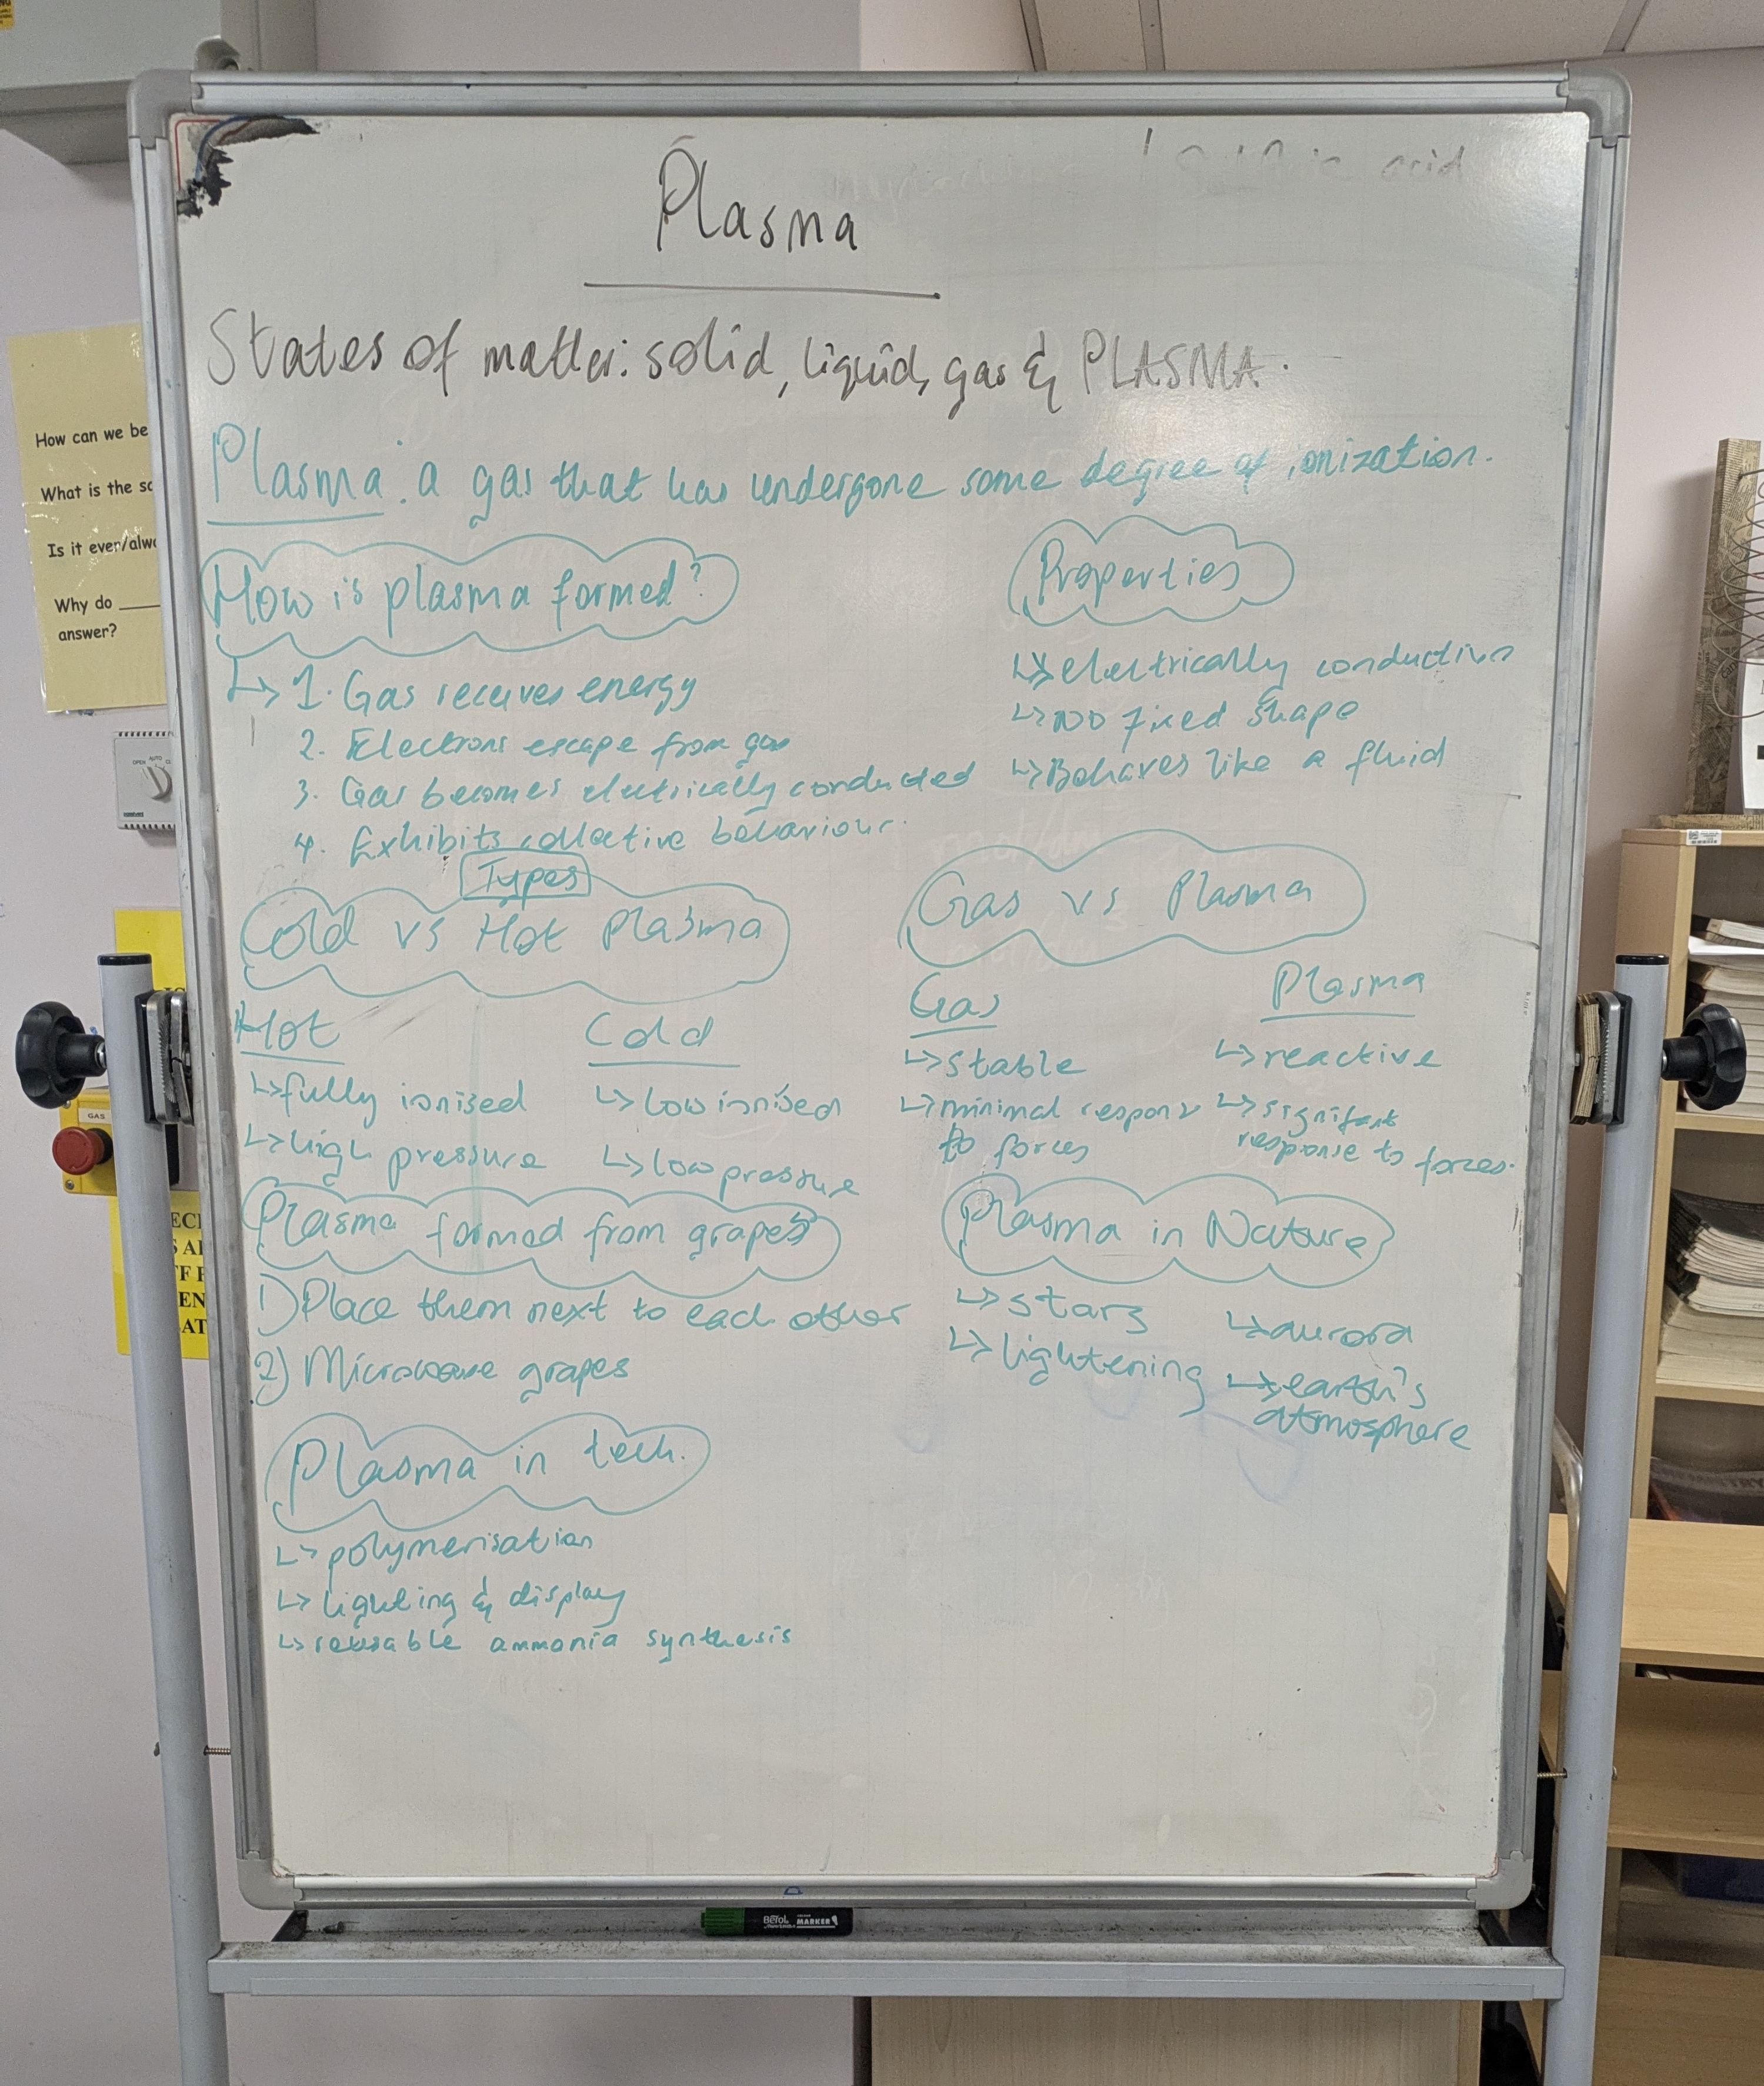 Plasma
acid
States of matter: solid, liquid, gas & PLASMA.
Plasma: a gas that has undergone some degree of ionization.
How is plasma formed?
↳ 1. Gas receives energy
2. Electrons escape from gas
3. Gas becomes electrically conducted
4. Exhibits collective behaviour.
Properties
↳ electrically conductive
↳ No fixed shape
↳ Behaves like a fluid
Types
Cold vs Hot Plasma
Hot
↳ fully ionised
↳ high pressure
Cold
↳ Low ionised
↳ low pressure
Gas vs Plasma
Gas
↳ stable
↳ minimal response
to forces
Plasma
↳ reactive
↳ signifant
response to forces.
Plasma formed from grapes
1) Place them next to each other
2) Microwave grapes
Plasma in Nature
↳ stars
↳ lightening
↳ aurora
↳ earth's
atmosphere
Plasma in tech.
↳ polymerisation
↳ lighting & display
↳ ammonia synthesis
How can we be
What is the
Is it ever/
Why do ____
answer?
OPEN AUTO
GAS
Berol
MARKER